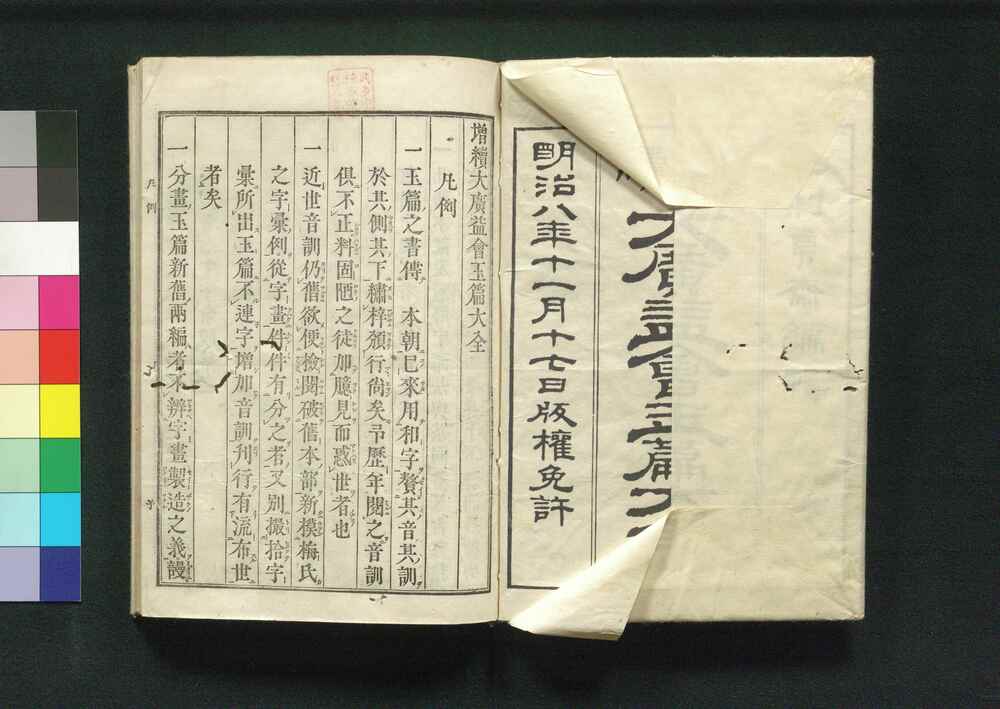 大廣益會玉篇大
明治八年十一月十七日版權免許
增續大廣益會玉篇大全
凡例
一玉篇之書傳 本朝已來用和字贅其音其訓
於其側其下繡梓頒行尙矣予歷年閱之音訓
俱不正料固陋之徒加臆見而惑世者也
一近世音訓仍舊欲便撿閱破舊本部新模梅氏
之字彙例從字畫件件有分之者又別撮拾字
彙所出玉篇不連字增加音訓刊行有流布世
者矣
一分畫玉篇新舊兩編考不辨字畫製造之義謾
凡例